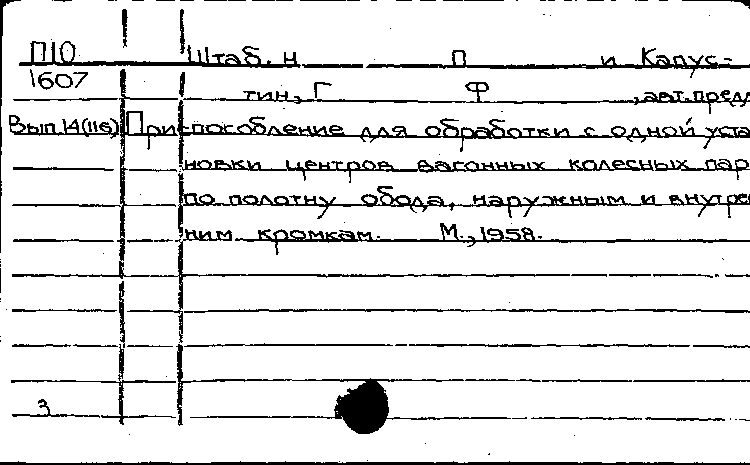 П10 Штаб. Н П и Капус-
1607 тин, Г Ф , авт. предл
Вып 14(116) Приспособление для обработки с одной уста
новки центров вагонных колесных пар
по полотну обода, наружным и внутрен
ним кромкам. М., 1958.
3